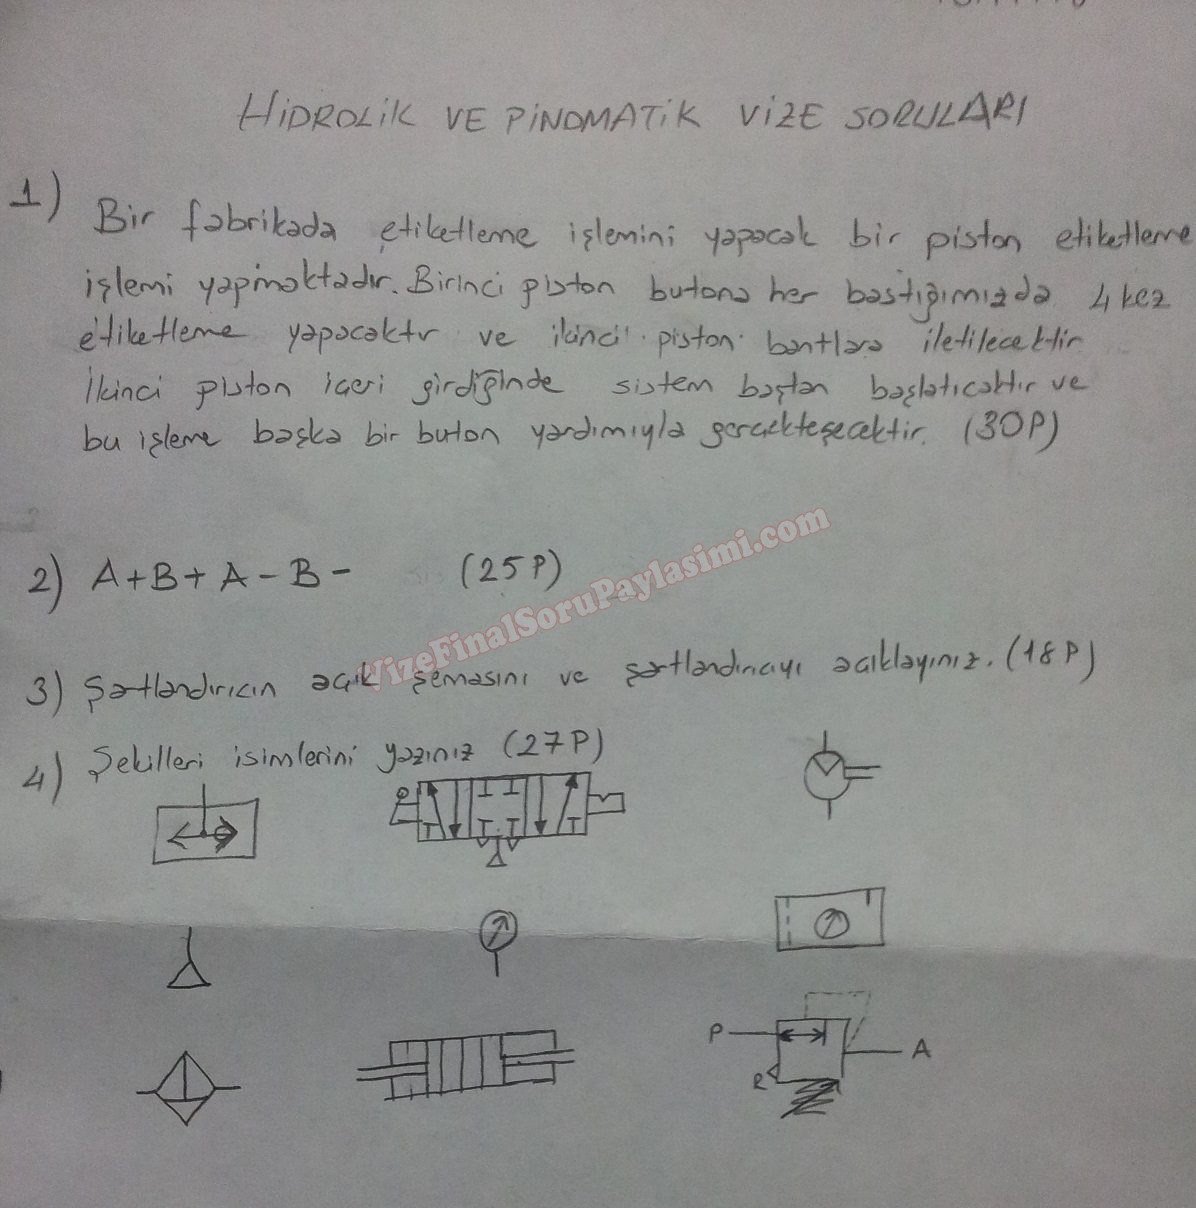 HİDROLİK VE PİNOMATİK VİZE SORULARI
1) Bir fabrikada etiketleme işlemini yapacak bir piston etiketleme
işlemi yapmaktadır. Birinci piston butona her bastığımızda 4 kez
etiketleme yapacaktır ve ikinci piston bantlara iletilecektir.
İkinci piston içeri girdiğinde sistem baştan başlatıcaktır ve
bu işleme başka bir buton yardımıyla gerçekteşecektir. (30P)
2) A+B+A-B- (25P)
VizeFinalSoruPaylasimi.com
3) Şartlandırıcın açık şemasını ve şartlandırıcıyı açıklayınız. (18P)
4) Şekilleri isimlerini yazınız (27P)
P
A
R